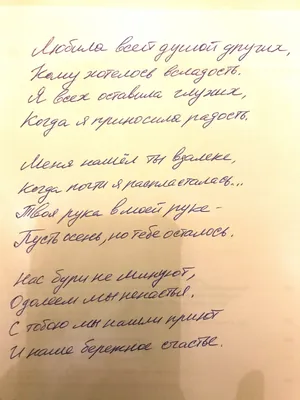 Любила всей душой других,
Кому хотелось всладость.
Я всех оставила глухих,
Когда я приносила радость.
Меня нашёл ты вдалеке,
Когда почти я распласталась...
Твоя рука в моей руке -
Пусть жень, но тебе осталось.
Нас бури не минуют,
Одолеем мы ненастья.
С тобою мы нашли приют
И наше бережное счастье.